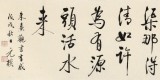 渠那得
清如許
為有源
頭活水
来
朱熹觀書有感